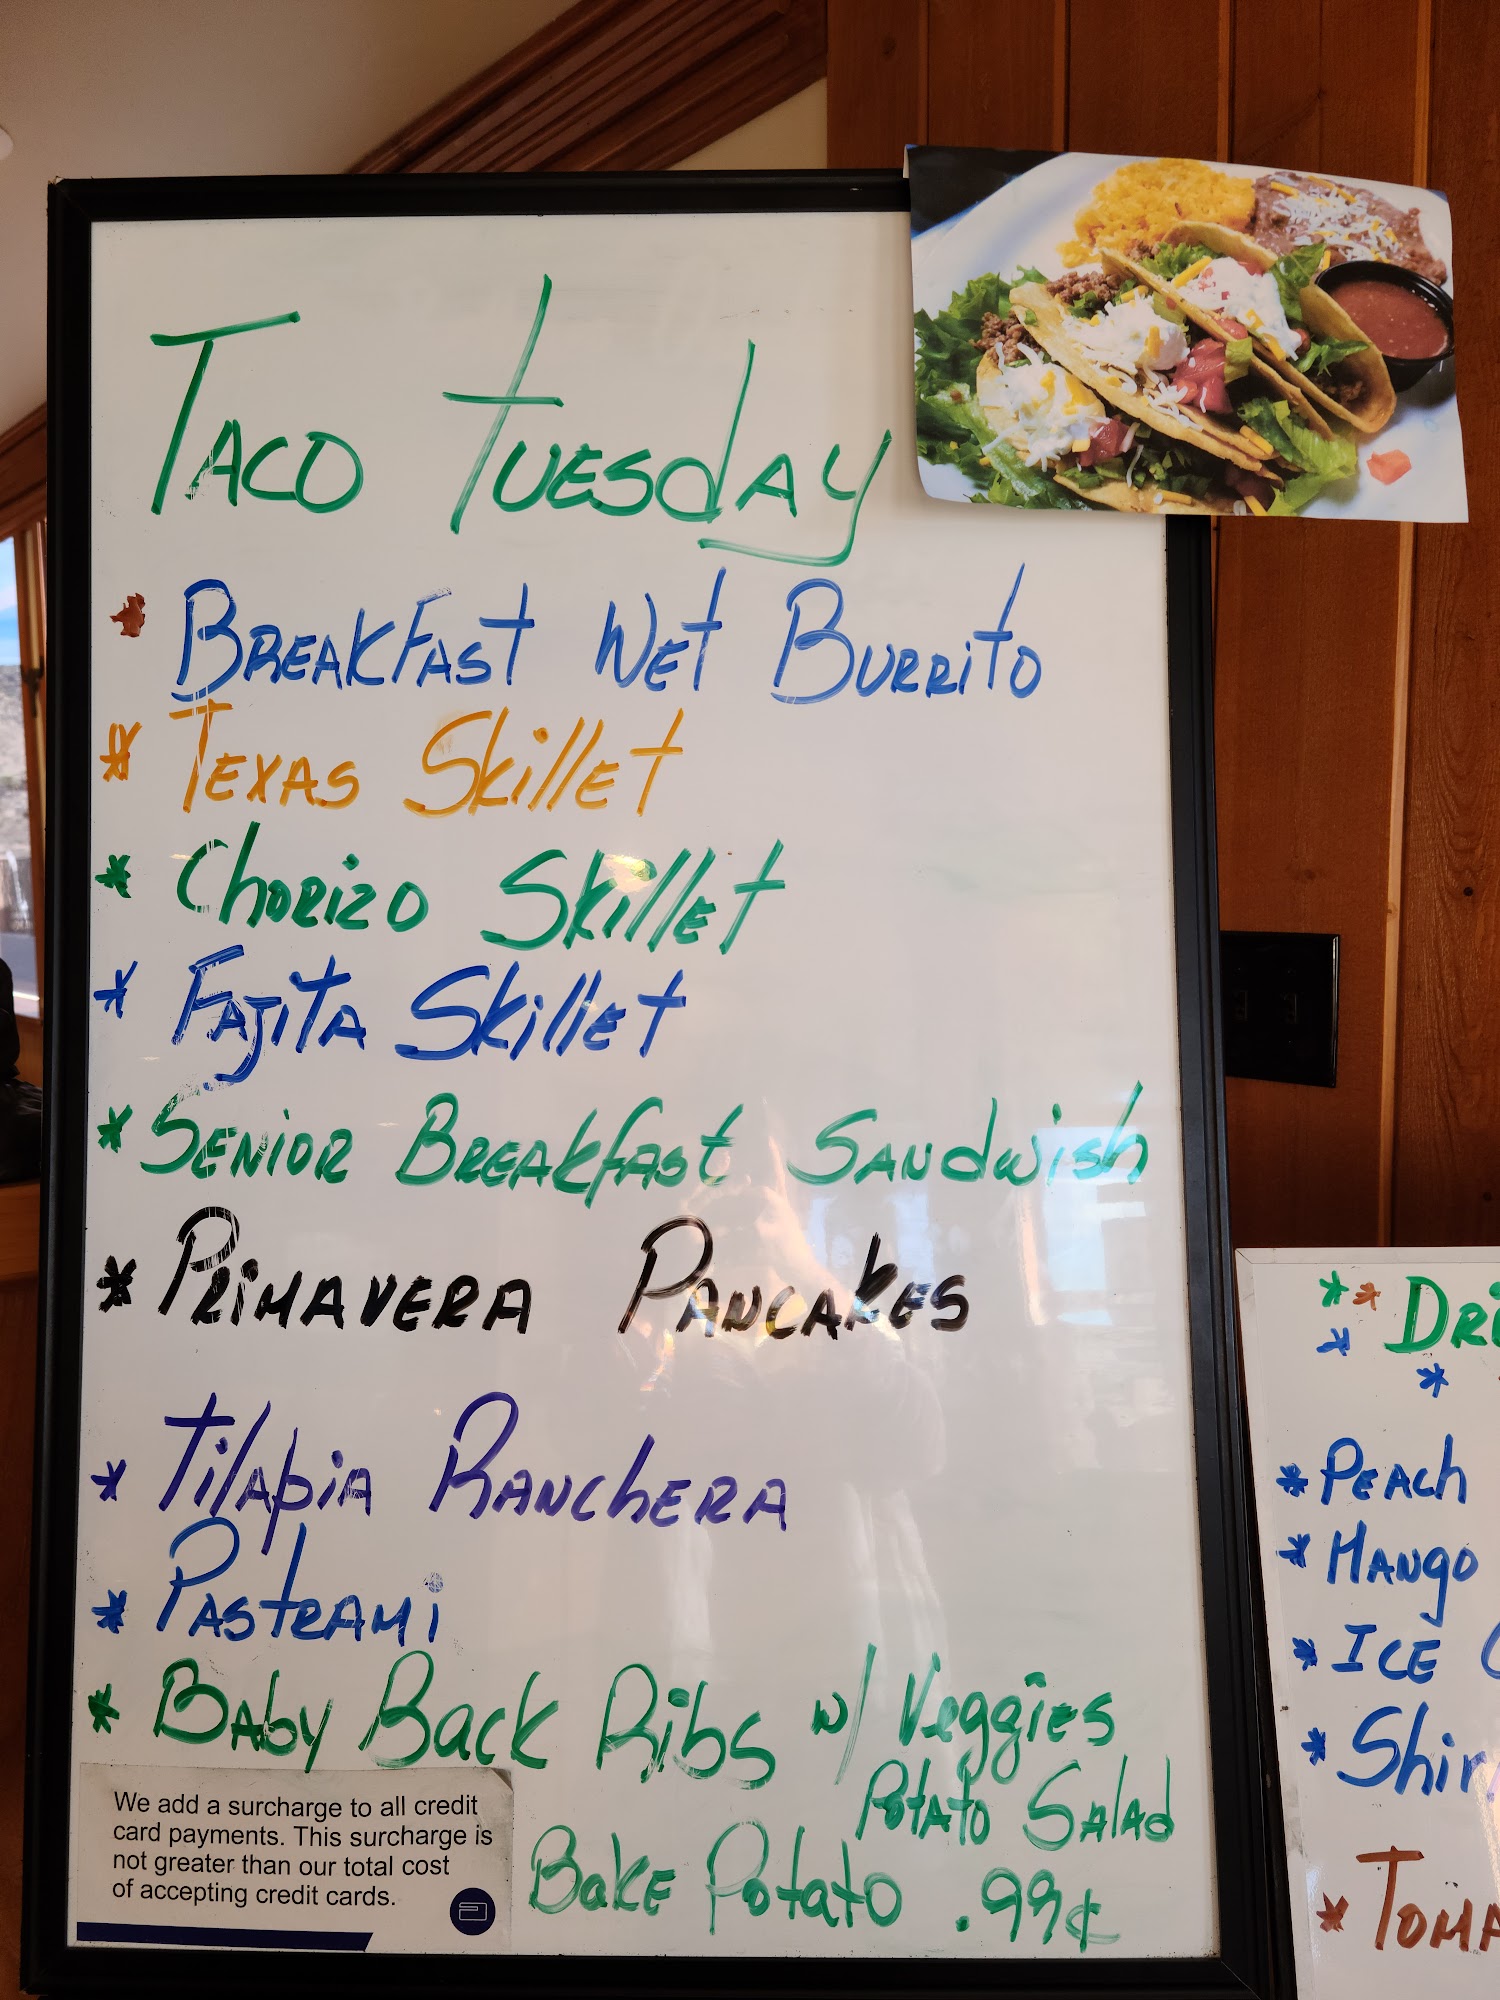 Taco Tuesday
* Breakfast Wet Burrito
* Texas Skillet
* Chorizo Skillet
* Fajita Skillet
* Senior Breakfast Sandwish
* Primavera Pancakes
* Tilapia Ranchera
* Pastrami
* Baby Back Ribs w/ Veggies
Potato Salad
Bake Potato .99¢
We add a surcharge to all credit
card payments. This surcharge is
not greater than our total cost
of accepting credit cards.
* Peach
* Mango
* Ice